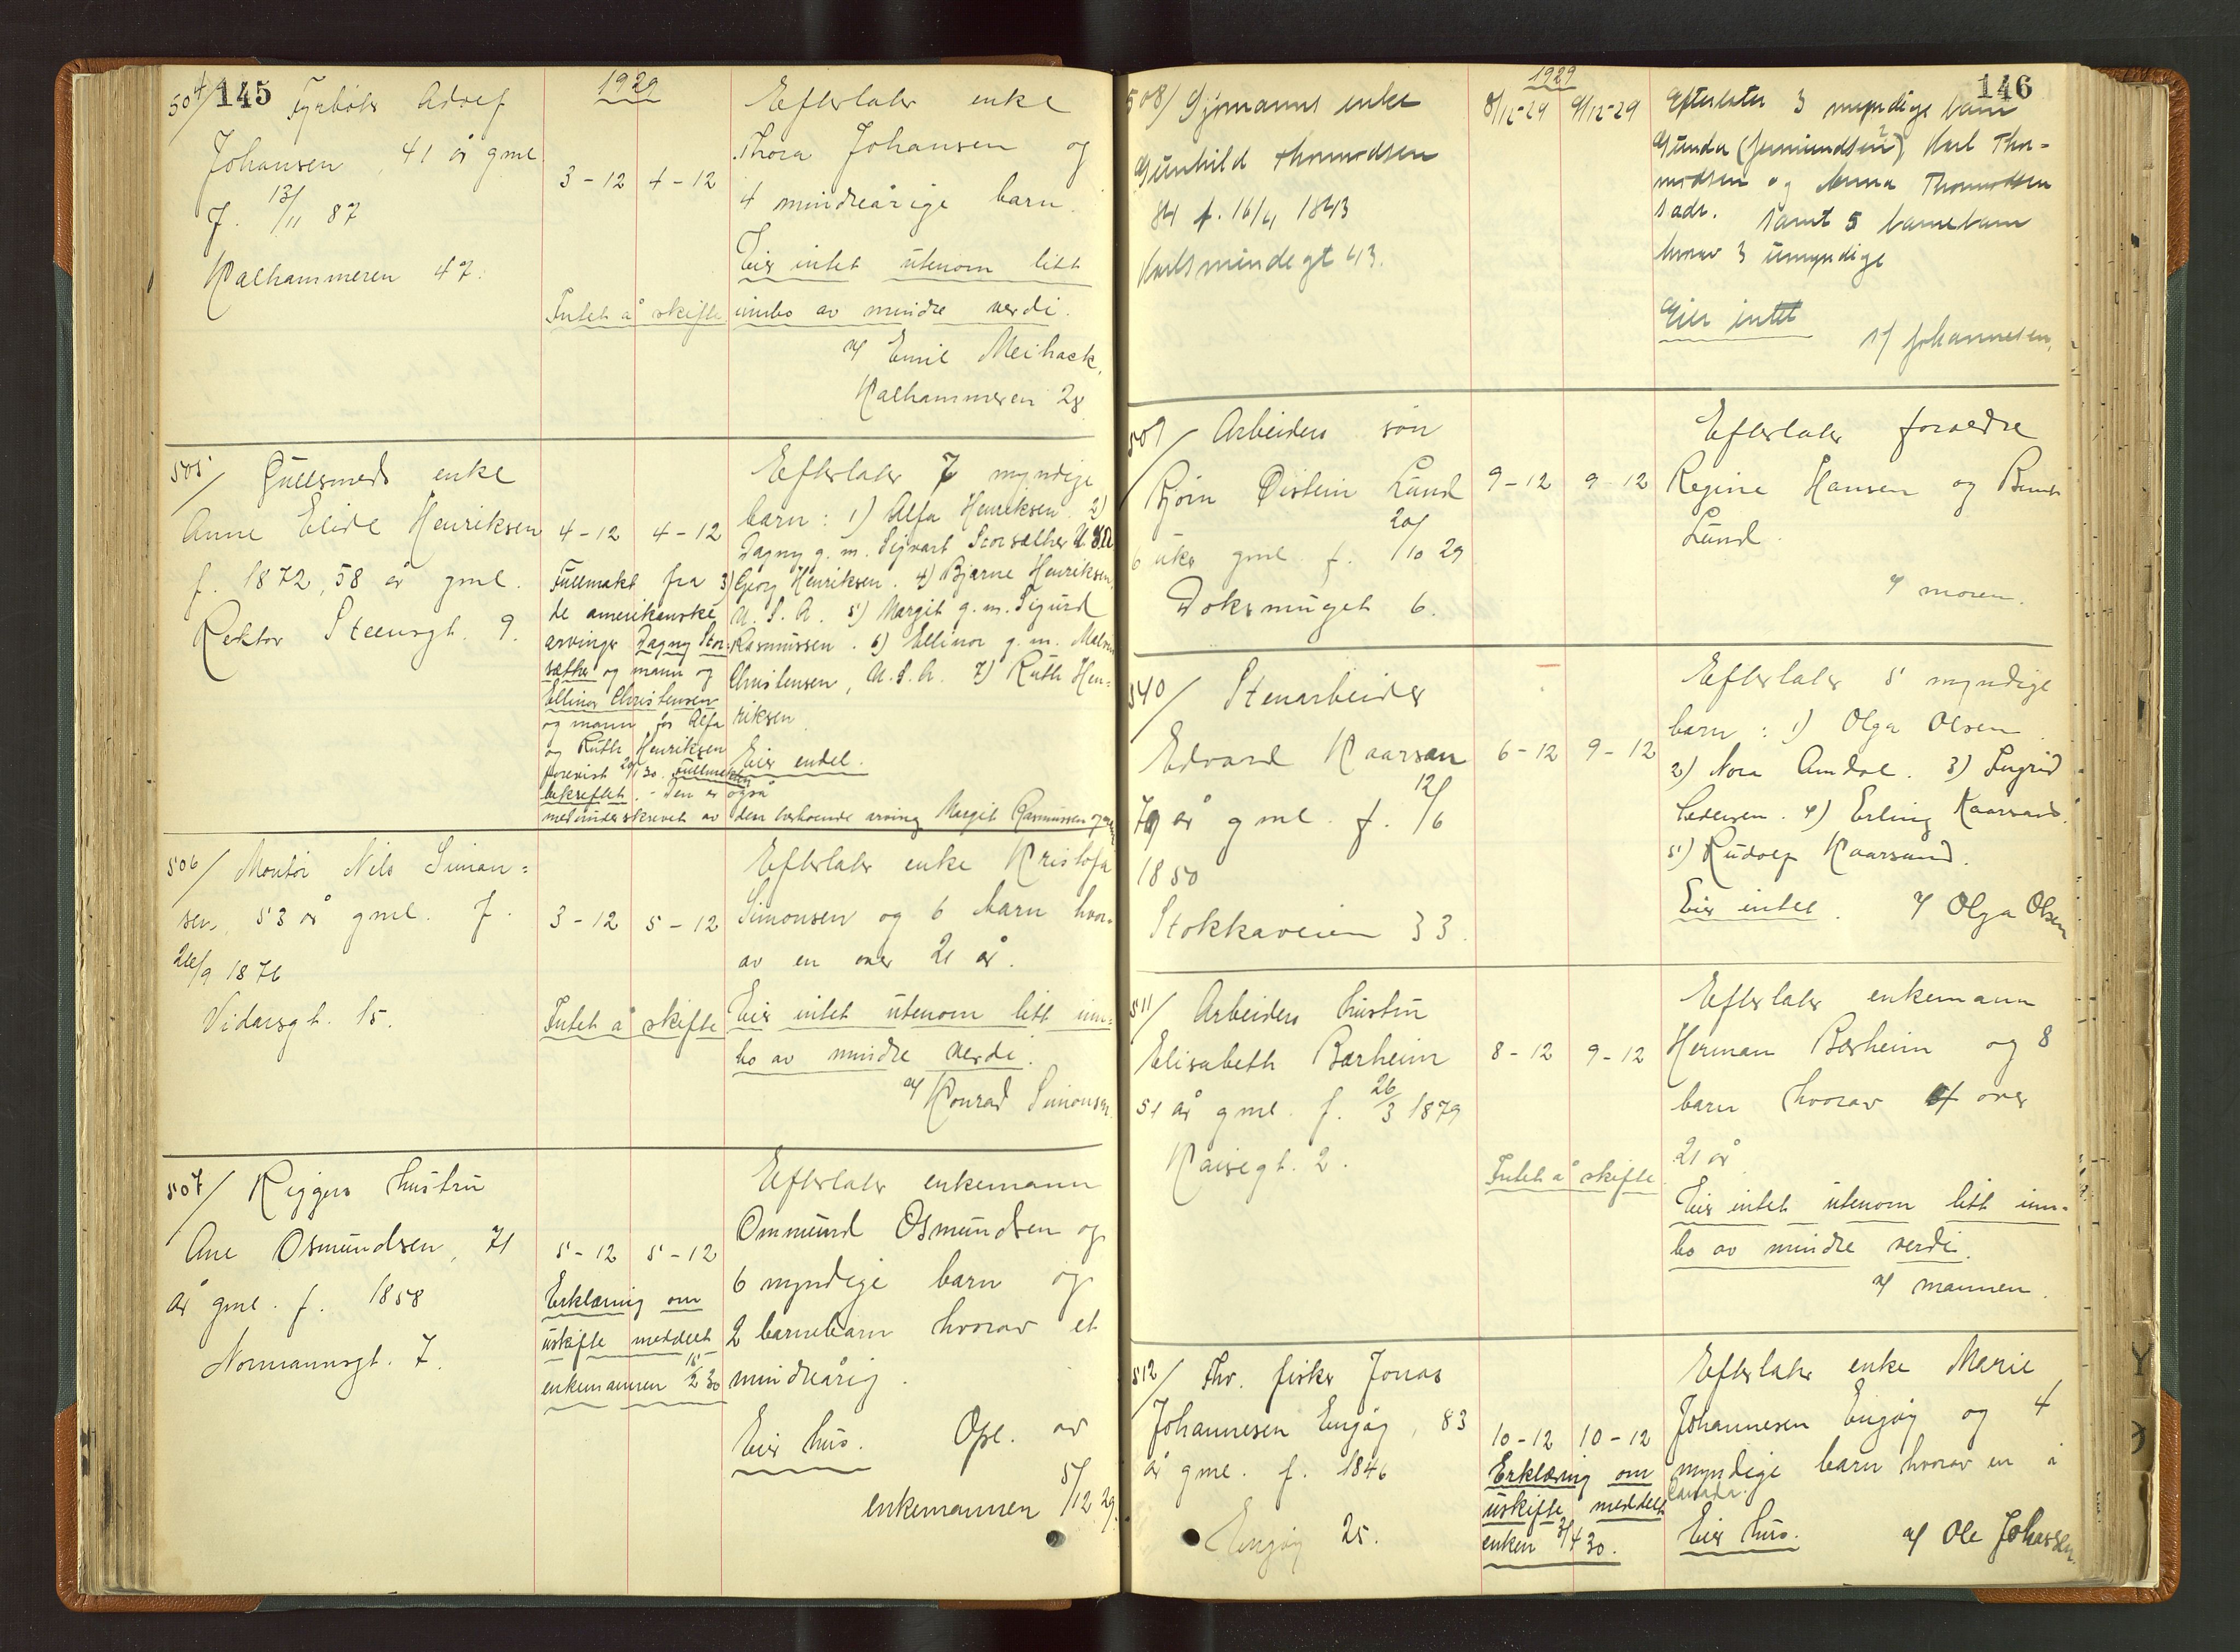 145
1929
504/ Fyrbøter Adolf
Johansen, 41 år gml
f. 13/11 87
Kalhammeren 47.
3-12 4-12
Intet å skifte
Efterlater enke
Thora Johansen og
4 mindreårige barn.
Eier intet utenom litt
innbo av mindre verdi.
Emil Meihack,
Kalhammeren 28
505/ Gullsmeds enke
Anne Elide Henriksen
f. 1872, 58 år gml.
Rektor Steensgt. 9.
4-12 4-12
Fullmakt fra
de amerikanske
arvinger Dagny Stor-
sæther og mann og
Ellinor Christensen
og mann for Alfa
og Ruth Henriksen
forevist 30. Fullmakten
bekreftet. - Den er også
medunderskrevet av den herboende arving Margit Rasmussen og
Efterlater 7 myndige
barn: 1) Alfa Henriksen. 2)
Dagny g.m. Sigvart Storsæther U.S.A
3) Georg Henriksen. 4) Bjarne Henriksen,
U.S.A. 5) Margit g.m. Sigurd
Rasmussen. 6) Ellinor g.m.
Christensen, U.S.A. 7) Ruth Hen-
riksen
Eier endel.
506/ Montør Nils Simon-
sen, 53 år gml. f.
26/9 1876
Vidarsgt. 15.
3-12 5-12
Intet å skifte
Efterlater enke Kristofa
Simonsen og 6 barn hvor-
av en over 21 år.
Eier intet utenom litt inn-
bo av mindre verdi.
Konrad Simonsen.
507/ Riggers hustru
Ane Osmundsen, 71
år gml. f. 1858
Normannsgt. 7.
5-12 5-12
Erklæring om
uskifte meddelt
enkemannen 15/2 30
Efterlater enkemann
Ommund Osmundsen og
6 myndige barn og
2 barnebarn hvorav et
mindreårig.
Eier hus. Opl. av
enkemannen 5/12 29.
146
1929
508/ Sjømanns enke
Gunhild Thomodsen
84 f. 16/4 1843
Karlsmindegt 43.
9/12-29
Efterlater 3 myndige barn
Gunda Karl Tho-
modsen og Anna Thomodsen
sadr. samt 5 barnebarn
hvorav 3 umyndige
Eier intet
Johannesen,
509/ Arbeiders søn
Bjørn Øistein Lund
6 uker gml. f. 20/10 29
Doksmuget 6.
9-12 9-12
Efterlater foreldre
Regine Hansen og Bernt
Lund.
moren.
510/ Stenarbeider
Edvard Kaarsan
79 år gml. f. 12/6
1850
Stokkaveien 33.
6-12 9-12
Efterlater 5 myndige
barn: 1) Olga Olsen.
2) Nora Amdal. 3) Ingrid
Pedersen. 4) Erling Kaarsand.
5) Rudolf Kaarsand.
Eier intet. Olga Olsen
511/ Arbeiders hustru
Elisabeth Bærheim
51 år gml. f. 26/3 1879
Kaisegt. 2.
8-12 9-12
Intet å skifte
Efterlater enkemann
Herman Bærheim og 8
barn hvorav 4 over
21 år.
Eier intet utenom litt inn-
bo av mindre verdi.
mannen.
512/ Fhv. fisker Jonas
Johannesen Engøy, 83
år gml. f. 1846
Engøy 25.
10-12 10-12
Erklæring om
uskifte meddelt
enken 3/4 30.
Efterlater enke Marie
Johannesen Engøy og 4
myndige barn hvorav en i
Canada.
Eier hus. Ole Johassen.